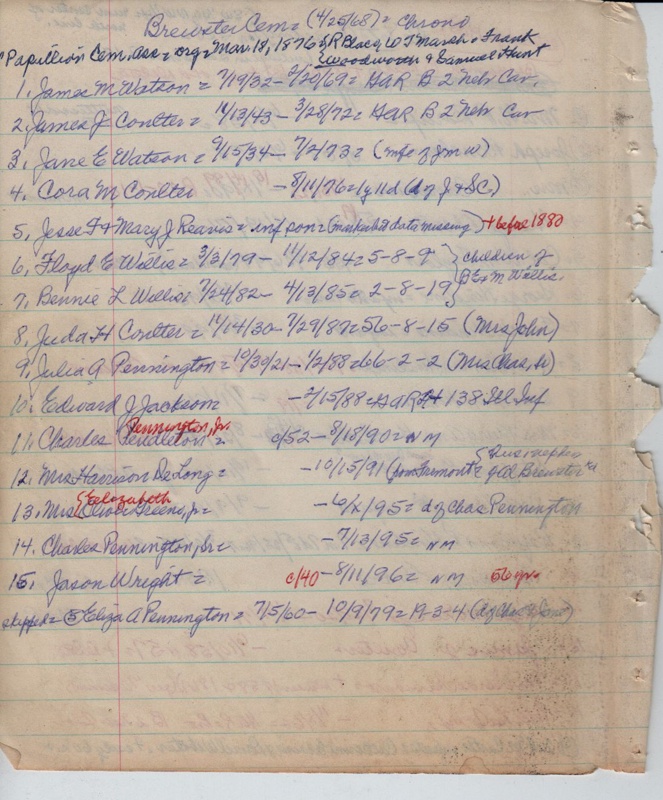 Brewster Cem = (4/25/68) = Chrono
"Papillion Cem. Ass = org = Mar. 18, 1876 = R Black, W T Marsh & Frank
Woodworth & Samuel Hunt
1. James M Watson = 7/19/32 - 2/20/69 = GAR B 2 Nebr Cav.
2. James J Coulter = 11/13/43 - 3/28/72 = GAR B 2 Nebr Cav
3. Jane E Watson = 9/15/34 - 7/2/73 = (wife of J m W)
4. Cora M Coulter - 8/11/76 = 1y 11d (d of J & SC.)
5. Jesse F & Mary J Reavis = inf son = (marker but data missing) + before 1880
6. Floyd E Willis = 3/3/79 - 11/12/84 = 5-8-9 } children of
7. Bennie L Willis 7/24/82 - 4/13/85 = 2-8-19 } B E & M Willis.
8. Juda H Coulter = 11/14/30 - 7/29/87 = 56-8-15 (Mrs John)
9. Julia A Pennington = 10/30/21 - 1/2/88 = 66-2-2 (Mrs Chas, Sr)
10. Edward J Jackson - 2/15/88 = GAR H 138 Ill Inf
Pennington, Jr.
11. Charles Pendleton = c/52 - 8/18/90 = N M
12. Mrs Harrison De Long = - 10/15/91 (from Fremont =
Elizabeth
13. Mrs Oliver Greene, Jr = - 6/x/95 = d of Chas Pennington
14. Charles Pennington, Sr = - 7/13/95 = N M
15. Jason Wright = c/40 - 8/11/96 = N M 56 yrs.
skipped = 5 Eliza A Pennington = 7/5/60 - 10/9/79 = 19-3-4 (d of Chas & Jane)